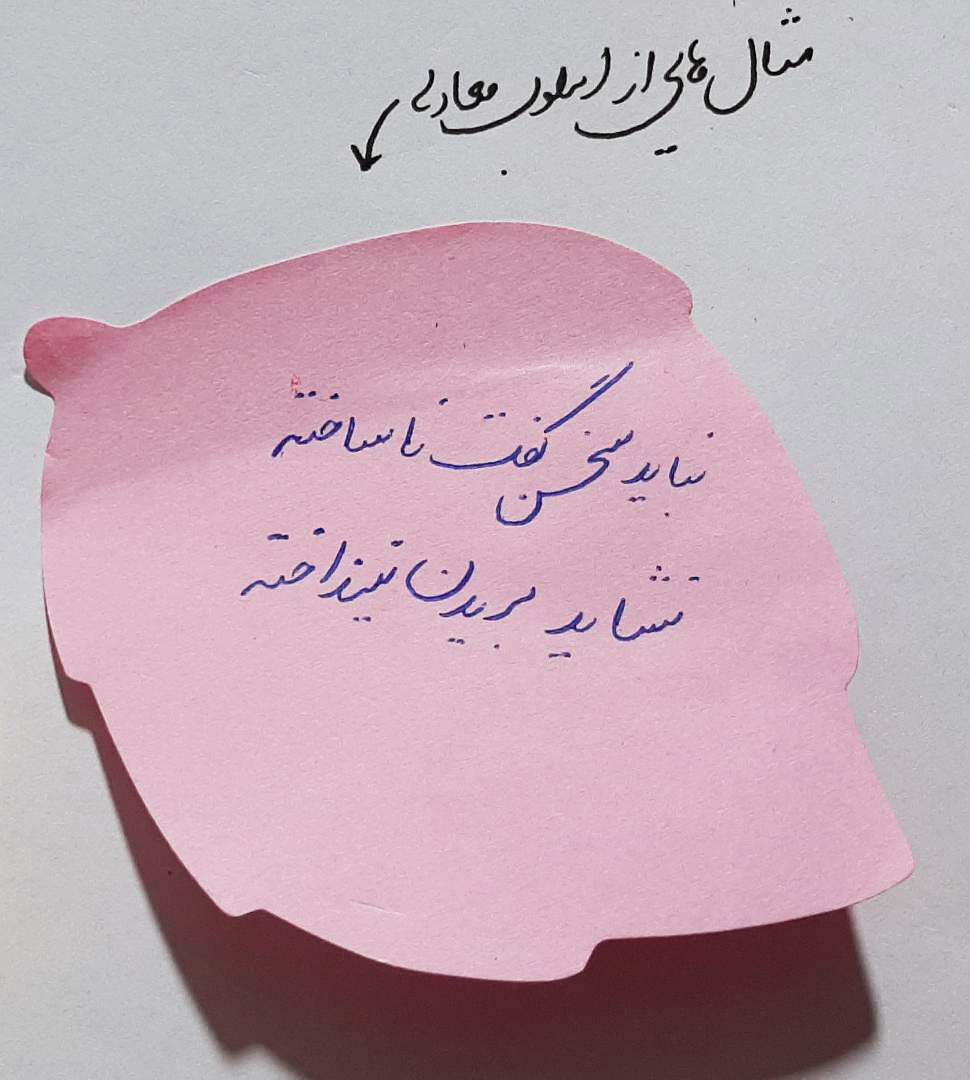 مثال هایی از اسلوب معادله
نباید سخن گفت ناساخته
نشاید بریدن نینداخته